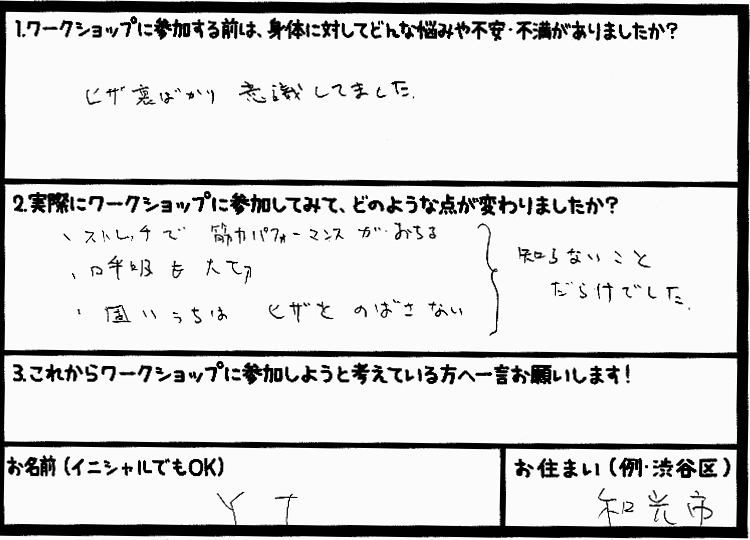 1.ワークショップに参加する前は、身体に対してどんな悩みや不安・不満がありましたか？
ヒザ裏ばかり 意識してました.
2.実際にワークショップに参加してみて、どのような点が変わりましたか？
・ストレッチで 筋力パフォーマンスが おちる
・呼吸も大切
・固いうちは ヒザをのばさない
知らないこと
だらけでした.
3.これからワークショップに参加しようと考えている方へ一言お願いします！
お名前（イニシャルでもOK）
Y T
お住まい（例・渋谷区）
和光市